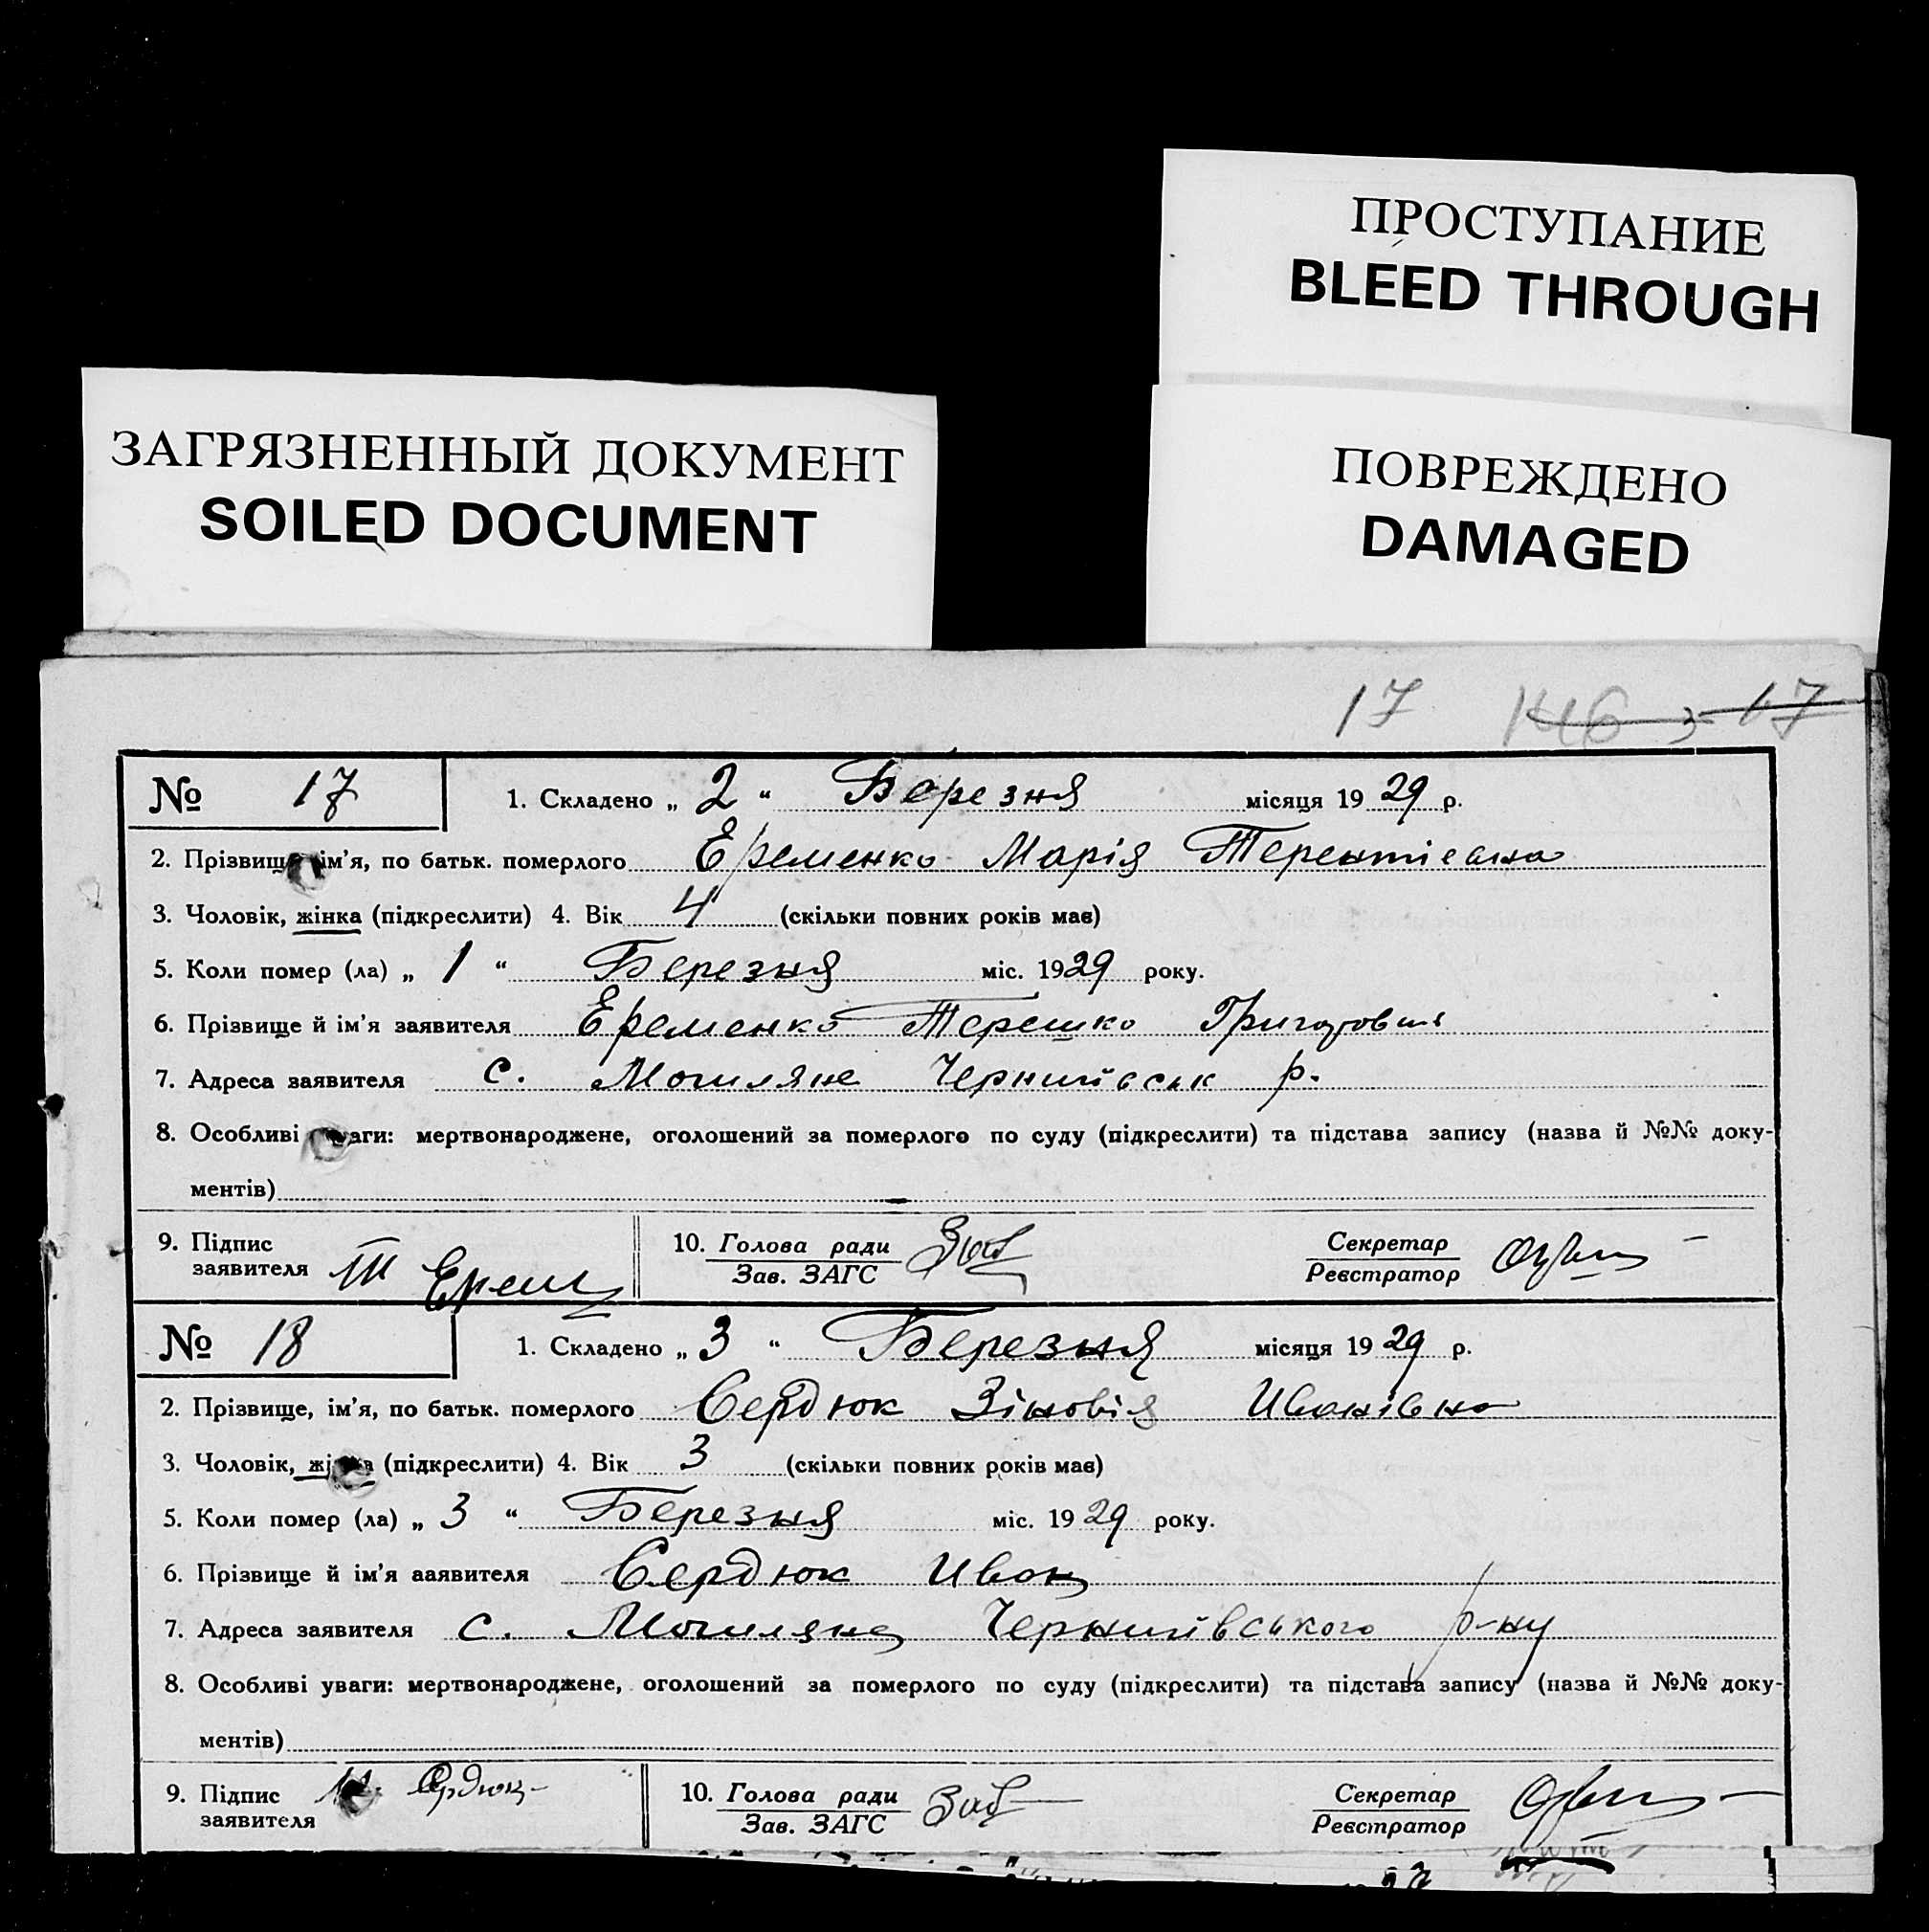 ПРОСТУПАНИЕ
BLEED THROUGH
ЗАГРЯЗНЕННЫЙ ДОКУМЕНТ
SOILED DOCUMENT
ПОВРЕЖДЕНО
DAMAGED
17 146 17
№ 17 1. Складено „ 2 “ Березня місяця 1929 р.
2. Прізвище ім’я, по батьк. померлого Еременко Марія Терентіевна
3. Чоловік, жінка (підкреслити) 4. Вік 4 (скільки повних років має)
5. Коли помер (ла) „ 1 “ Березня міс. 1929 року.
6. Прізвище й ім’я заявителя Еременко Терешко Григорович
7. Адреса заявителя с. Могиляне Чернигівськ р.
8. Особливі уваги: мертвонароджене, оголошений за померлого по суду (підкреслити) та підстава запису (назва й №№ доку-
ментів)
9. Підпис заявителя Т Ерем 10. Голова ради Зав. ЗАГС Секретар Реєстратор
№ 18 1. Складено „ 3 “ Березня місяця 1929 р.
2. Прізвище, ім’я, по батьк. померлого Сердюк Зіновія Иванівна
3. Чоловік, жінка (підкреслити) 4. Вік 3 (скільки повних років має)
5. Коли помер (ла) „ 3 “ Березня міс. 1929 року.
6. Прізвище й ім’я ааявителя Сердюк Иван
7. Адреса заявителя с. Могиляне Чернигівського р-ну
8. Особливі уваги: мертвонароджене, оголошений за померлого по суду (підкреслити) та підстава запису (назва й №№ доку-
ментів)
9. Підпис заявителя Сердюк 10. Голова ради Зав. ЗАГС Секретар Реєстратор